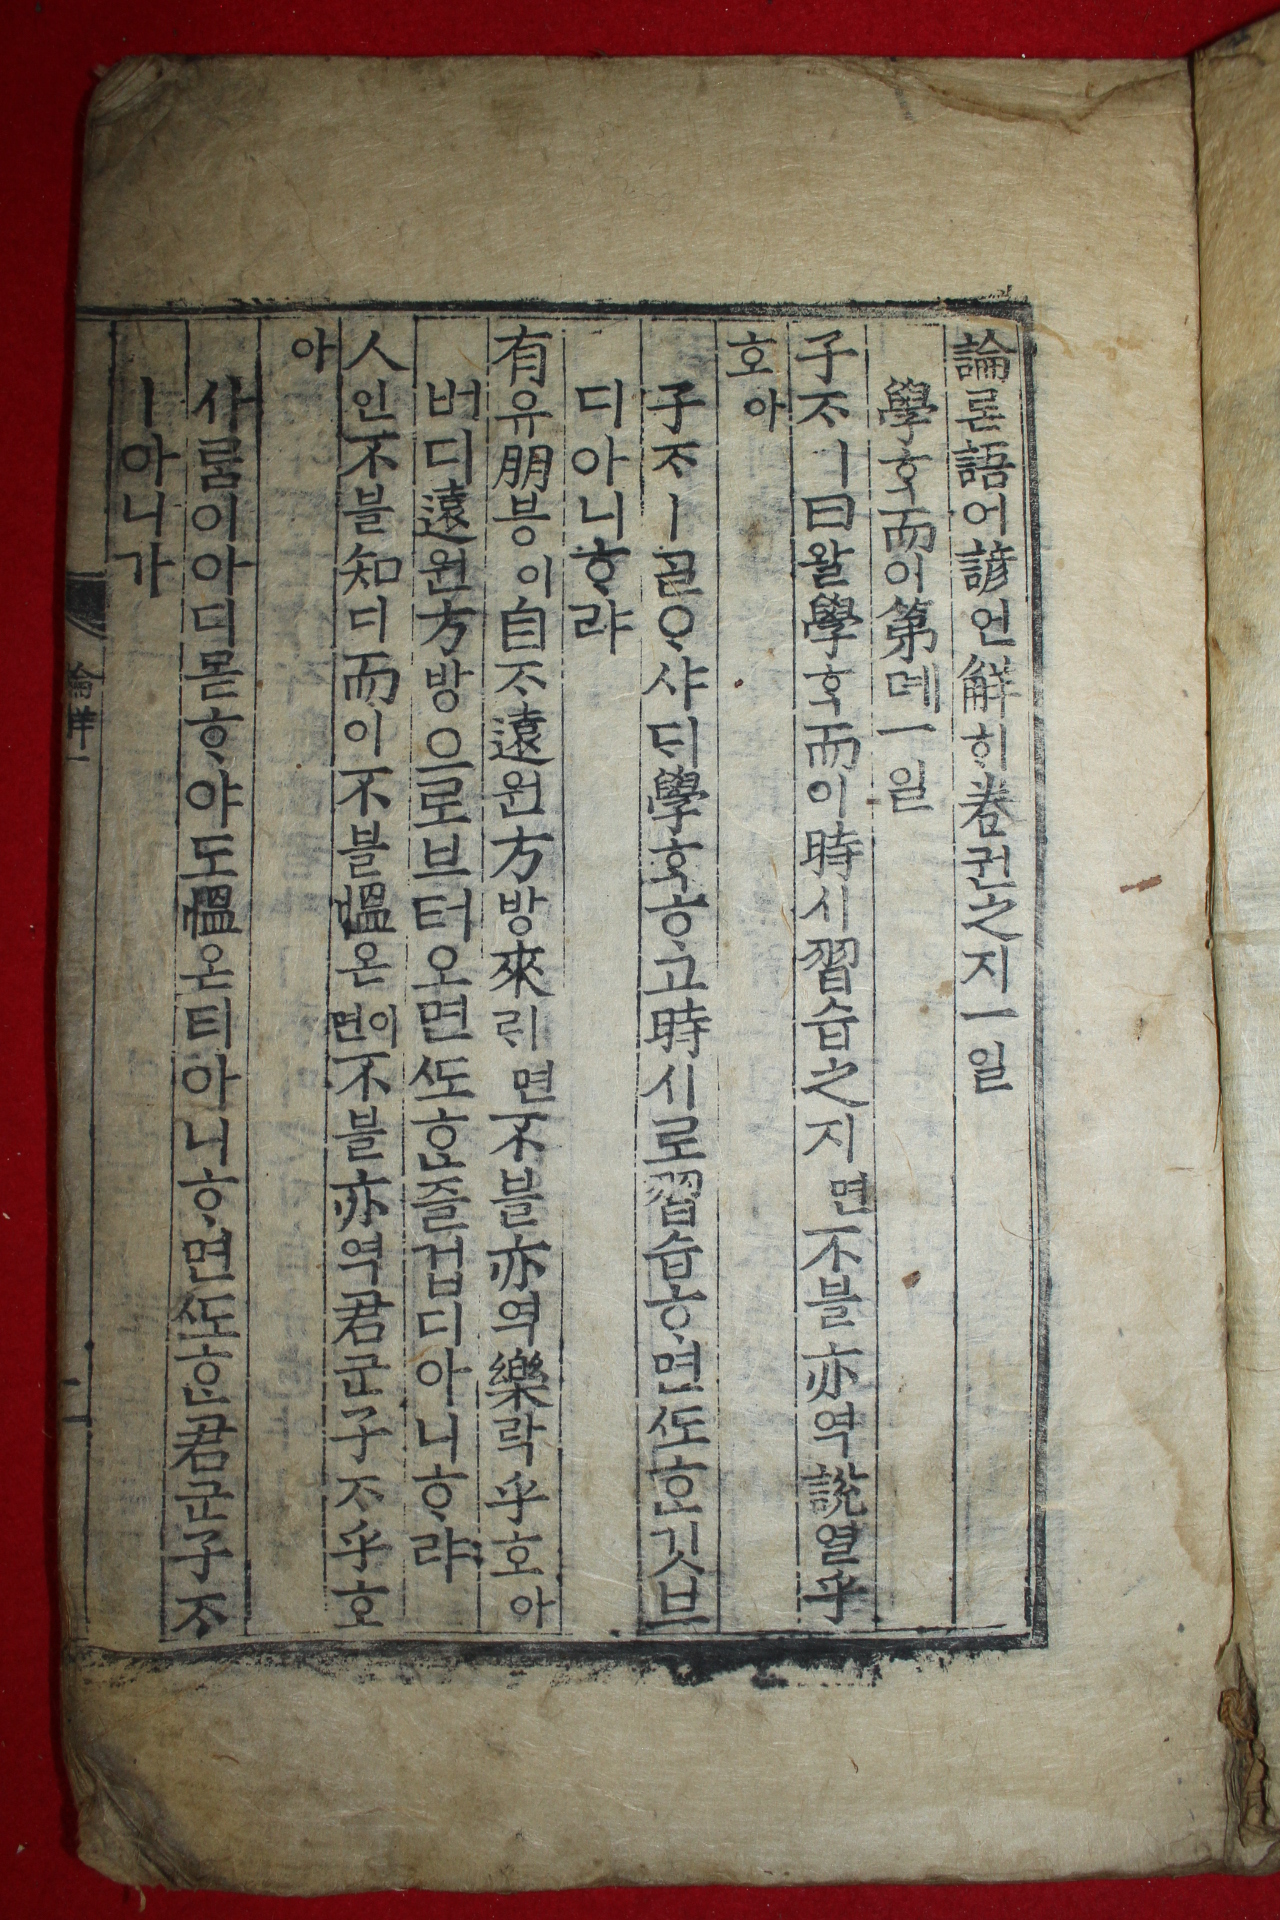 論론語어諺언解ᄒᆡ卷권之지一일
學ᄒᆞᆨ而이第뎨一일
子ᄌᆞㅣ曰왈學ᄒᆞᆨ而이時시習습之지면不블亦역說열乎
호아
子ᄌᆞㅣᄀᆞᆯᄋᆞ샤ᄃᆡ學ᄒᆞᆨᄒᆞ고時시로習습ᄒᆞ면ᄯᅩᄒᆞᆫ깃브
디아니ᄒᆞ랴
有유朋붕이自ᄌᆞ遠원方방來ᄅᆡ면不블亦역樂락乎호아
버디遠원方방으로브터오면ᄯᅩᄒᆞᆫ즐겁디아니ᄒᆞ랴
人인不블知디而이不블慍온이면不블亦역君군子ᄌᆞ乎호
아
사ᄅᆞᆷ이아디몯ᄒᆞ야도慍온티아니ᄒᆞ면ᄯᅩᄒᆞᆫ君군子ᄌᆞ
ㅣ아니가
論觧一